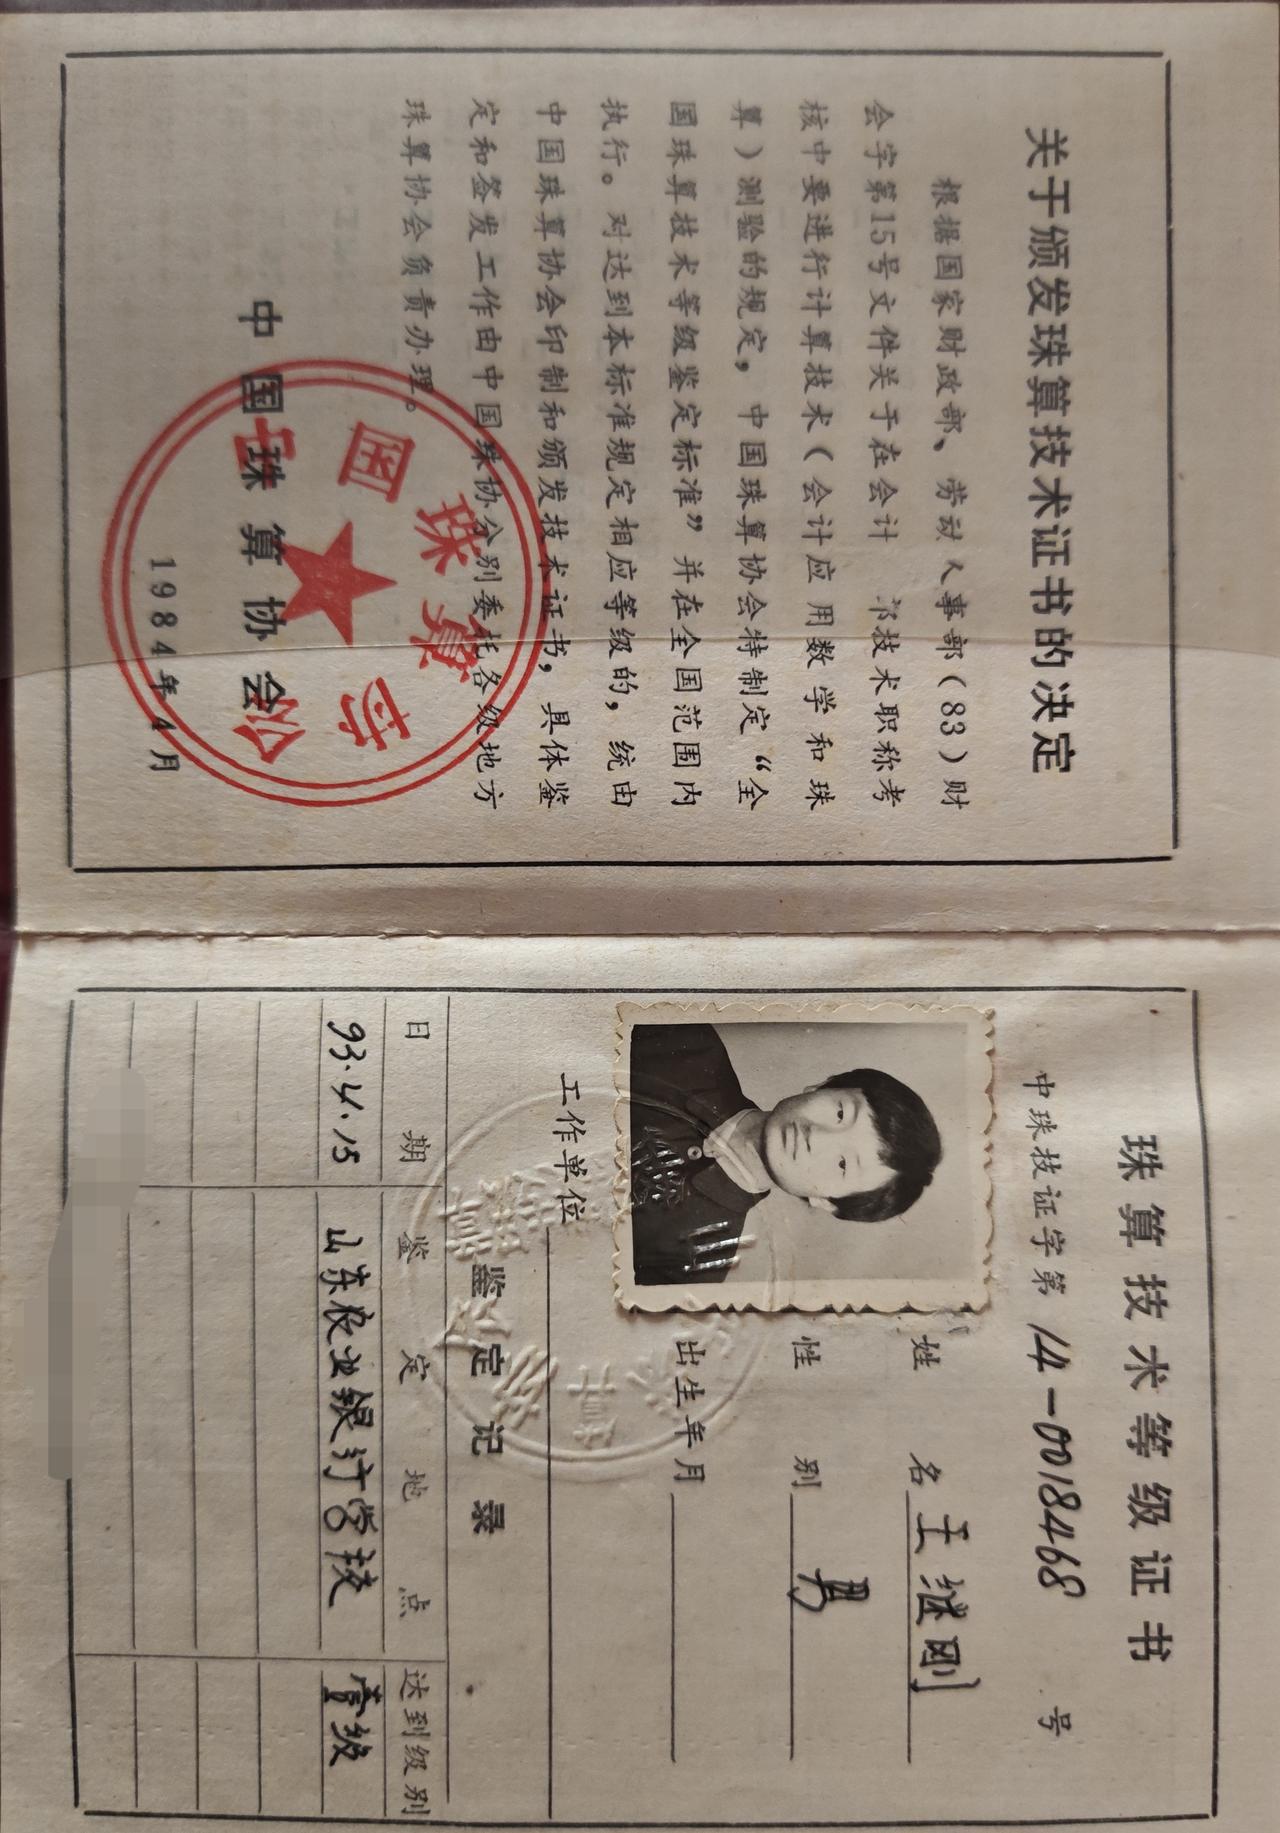 关于颁发珠算技术证书的决定
根据国家财政部、劳动人事部（83）财
会字第15号文件关于在会计 技术职称考
核中要进行计算技术（会计应用数学和珠
算）测验的规定，中国珠算协会特制定“全
国珠算技术等级鉴定标准”并在全国范围内
执行。对达到本标准规定相应等级的，统由
中国珠算协会印制和颁发技术证书，具体鉴
定和签发工作由中国珠协分别委托各级地方
珠算协会负责办理。
中国珠算协会
1984年4月
中国珠算协会
珠算技术等级证书
中珠技证字第 14-0018468 号
姓名 王继刚
性别 男
出生年月
工作单位
鉴定记录
日期 鉴定地点 达到级别
93.4.15 山东农业银行学校 壹级